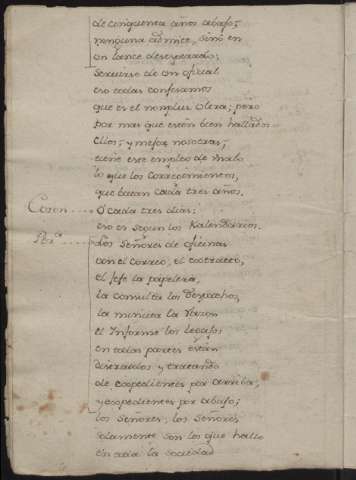 de cinquenta años abajo;
ninguna admite, sino en
un lance desesperado;
de un oficial
eso todas confesamos
que es el nonplus ultra; pero
por mas que estén bien hallados
ellos, y mejor nosotras,
tiene este empleo de malo
lo que los Corregimientos,
que bacan cada tres años.
Coron. O cada tres dias;
eso es segun los Kalendarios.
Los Señores de oficinas
con el Correo, el extracto,
el Gefe la papelera,
la consulta los Despachos,
la minuta la Razon
el Informe los legajos
en todas partes están
distraidos y tratando
de expedientes por arriba,
y expedientes por abajo;
los señores, los señores
solamente son los que hallo
en toda la sociedad